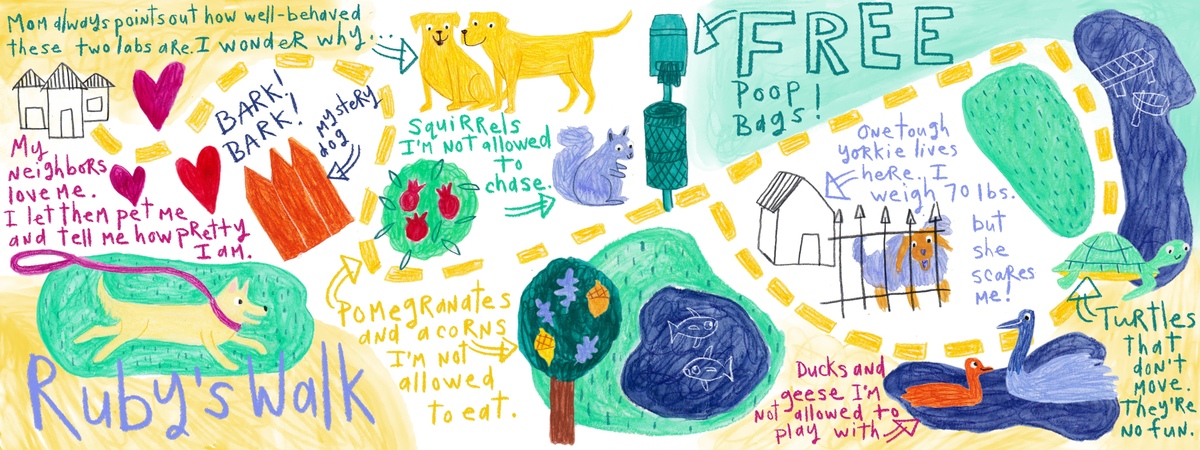 Mom always points out how well-behaved
these two labs are. I wonder why...
FREE
Poop
Bags!
BARK!
BARK!
BARK!
mystery
dog
My
neighbors
love me.
I let them pet me
and tell me how pretty
I am.
Squirrels
I'm not allowed
to
chase.
One tough
yorkie lives
here. I
weigh 70 lbs.
but
she
scares
me!
Pomegranates
and acorns
I'm not
allowed
to eat.
Ruby's Walk
Ducks and
geese I'm
not allowed to
play with
Turtles
that
don't
move.
They're
no fun.